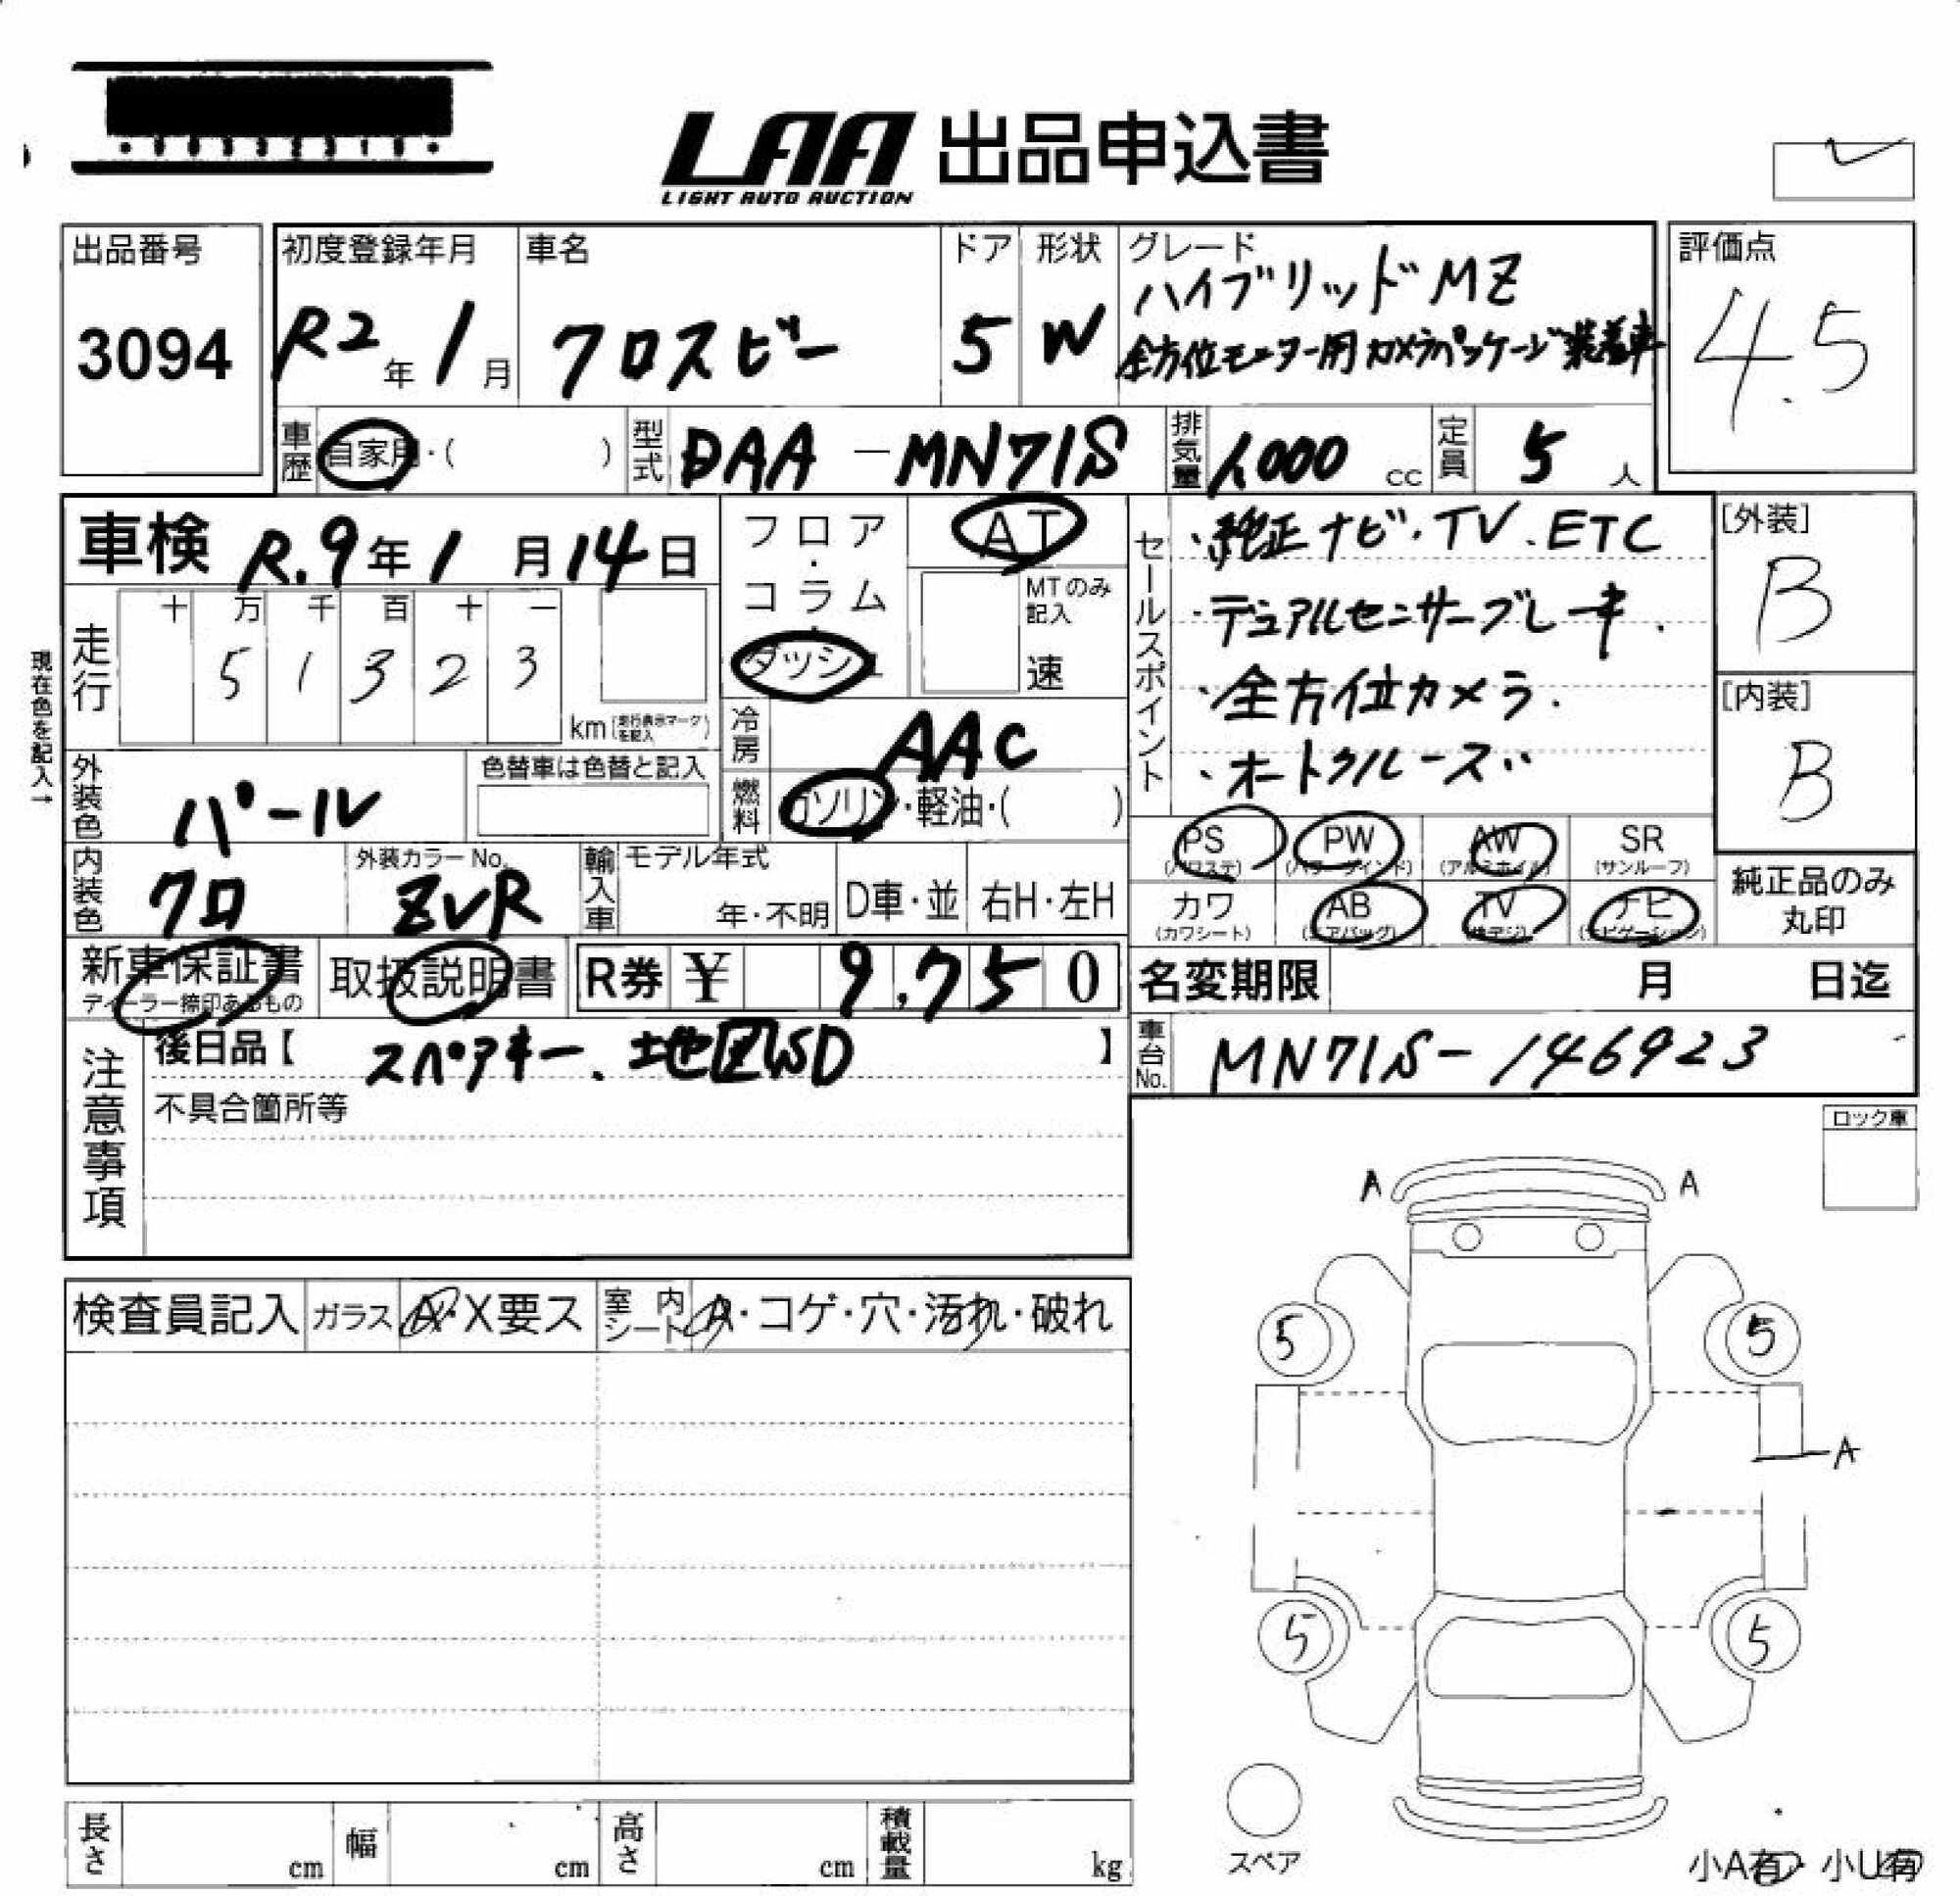 LAA 出品申込書
LIGHT AUTO AUCTION
出品番号
3094
初度登録年月
R2年1月
車名
クロスビー
ドア
5
形状
W
グレード
ハイブリッドMZ
全方位モニター用カメラパッケージ装着車
評価点
4.5
車歴 自家用・( )
型式 DAA-MN71S
排気量 1000 cc
定員 5 人
車検 R.9年1月14日
フロア・コラム・ダッシュ
AT
MTのみ記入
速
現在色を記入→
走行
十 万 千 百 十 一
5 1 3 2 3
km(走行表示マークを記入)
冷房 AAC
外装色 パール
色替車は色替と記入
燃料 ガソリン・軽油・( )
セールスポイント
・純正ナビ・TV.ETC
・デュアルセンサーブレーキ.
・全方位カメラ.
・オートクルーズ..
[外装]
B
[内装]
B
PS (パワステ)
PW (パワーウインド)
AW (アルミホイル)
SR (サンルーフ)
カワ (カワシート)
AB (エアバッグ)
TV (地デジ)
ナビ (ナビゲーション)
純正品のみ丸印
内装色 クロ
外装カラーNo. ZVR
輸入車
モデル年式
年・不明
D車・並
右H・左H
新車保証書
ディーラー捺印あるもの
取扱説明書
R券 ¥ 9,750
名変期限 月 日迄
注意事項
後日品【 スペアキー、地図SD 】
不具合箇所等
車台No. MN71S-146923
ロック車
A A
5 5
A
5 5
検査員記入
ガラス A・X要ス
室内シート A・コゲ・穴・汚れ・破れ
長さ cm
幅 cm
高さ cm
積載量 kg
スペア
小A有・小U有